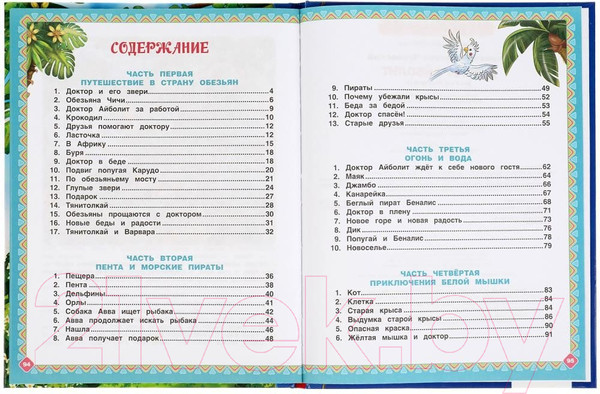 СОДЕРЖАНИЕ
ЧАСТЬ ПЕРВАЯ
ПУТЕШЕСТВИЕ В СТРАНУ ОБЕЗЬЯН
1. Доктор и его звери 4
2. Обезьяна Чичи 6
3. Доктор Айболит за работой 9
4. Крокодил 10
5. Друзья помогают доктору 12
6. Ласточка 12
7. В Африку 15
8. Буря 15
9. Доктор в беде 18
10. Подвиг попугая Карудо 20
11. По обезьяньему мосту 21
12. Глупые звери 24
13. Подарок 27
14. Тянитолкай 28
15. Обезьяны прощаются с доктором 30
16. Новые беды и радости 31
17. Тянитолкай и Варвара 32
ЧАСТЬ ВТОРАЯ
ПЕНТА И МОРСКИЕ ПИРАТЫ
1. Пещера 36
2. Пента 38
3. Дельфины 40
4. Орлы 41
5. Собака Авва ищет рыбака 42
6. Авва продолжает искать рыбака 44
7. Нашла 46
8. Авва получает подарок 48
94
9. Пираты 49
10. Почему убежали крысы 52
11. Беда за бедой 53
12. Доктор спасён! 54
13. Старые друзья 55
ЧАСТЬ ТРЕТЬЯ
ОГОНЬ И ВОДА
1. Доктор Айболит ждёт к себе нового гостя 62
2. Маяк 64
3. Джамбо 66
4. Канарейка 66
5. Беглый пират Беналис 68
6. Доктор в плену 71
7. Новое горе и новая радость 73
8. Дик 76
9. Попугай и Беналис 78
10. Новоселье 79
ЧАСТЬ ЧЕТВЁРТАЯ
ПРИКЛЮЧЕНИЯ БЕЛОЙ МЫШКИ
1. Кот 83
2. Клетка 84
3. Старая крыса 84
4. Выдумка старой крысы 86
5. Опасная краска 90
6. Жёлтая мышка и доктор 91
95
21vek.by